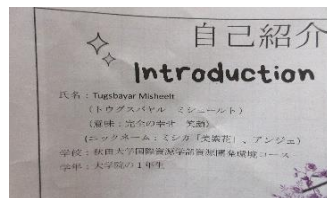 自己紹介
Introduction
氏名：Tugsbayar Misheelt
（トウグスバヤル　ミシェールト）
（意味：完全の幸せ　笑顔）
（ニックネーム：ミシカ「美紫花」、アンジェ）
学校：秋田大学国際資源学部資源開発環境コース
学年：大学院の１年生